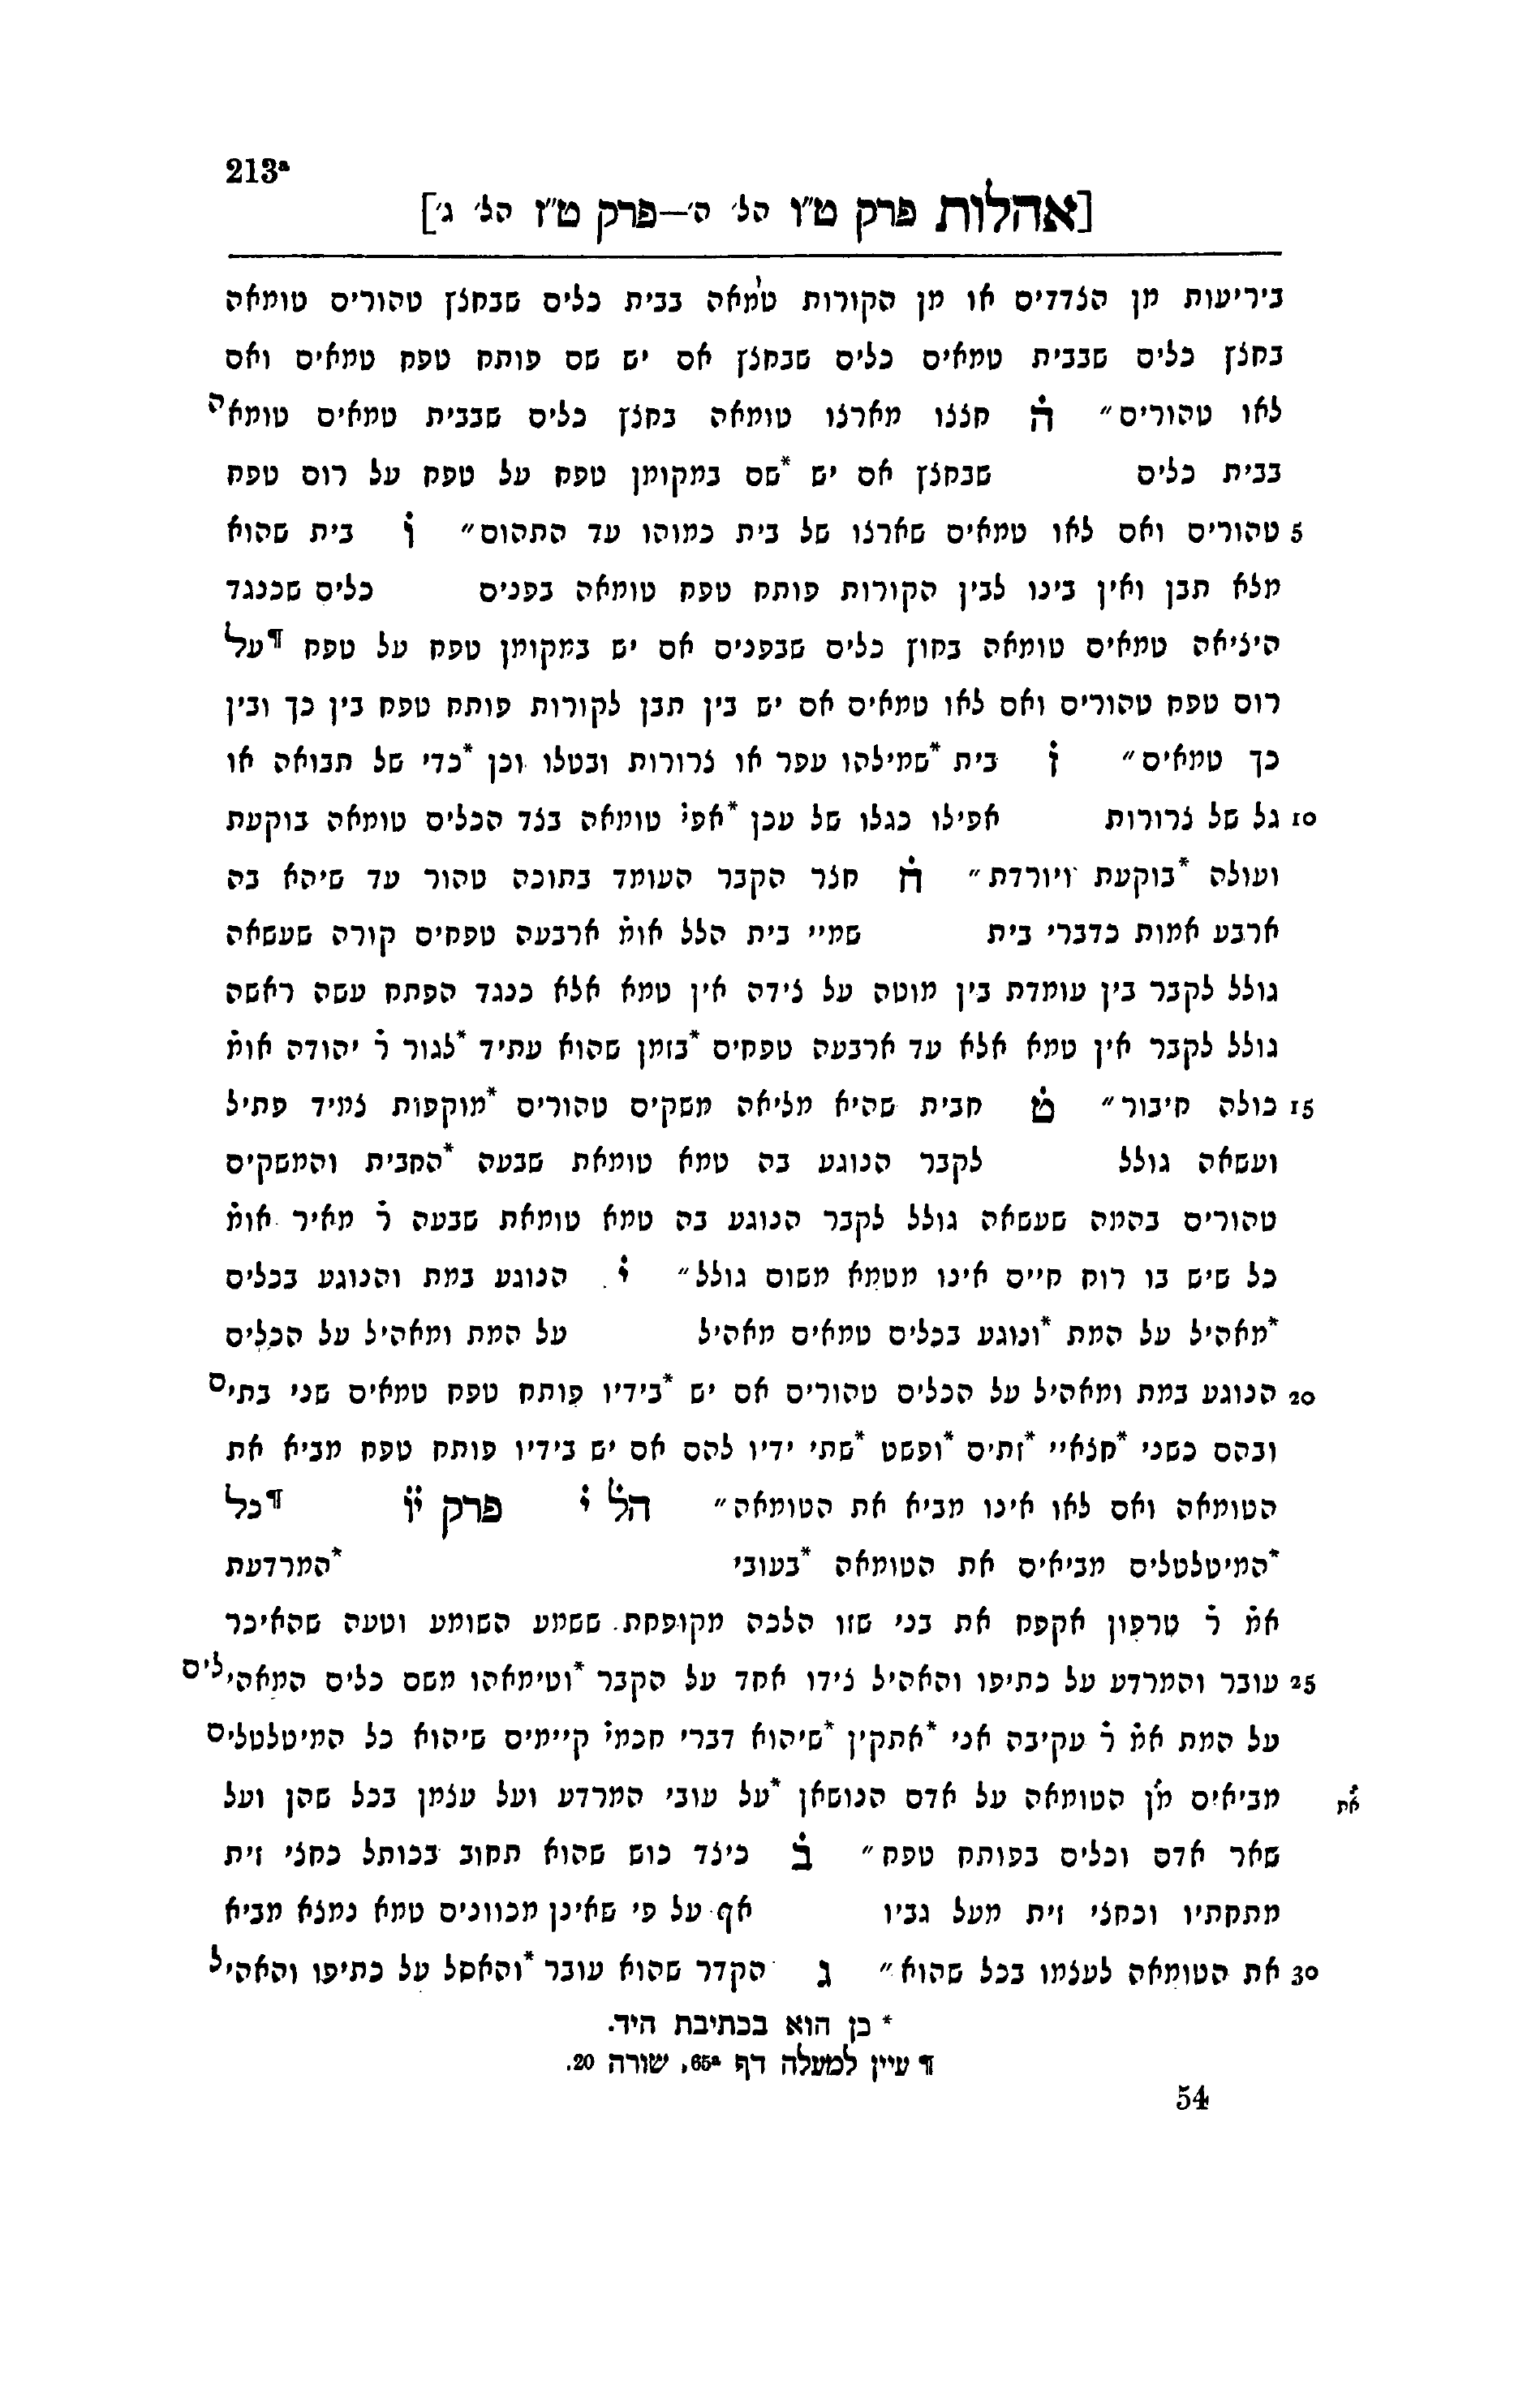 213ª
[אהלות פרק ט״ו הל׳ ה׳—פרק ט״ז הל׳ ג׳]
ביריעות מן הצדדים או מן הקורות טׄמאה בבית כלים שבחצץ טהורים טומאה
בחצץ כלים שבבית טמאים כלים שבחצץ אם יש שם פותח טפח טמאים ואם
לאו טהורים״ הׄ חצצו מארצו טומאה בחצץ כלים שבבית טמאים טומאה
בבית כלים שבחצץ אם יש *שם במקומן טפח על טפח על רום טפח
5 טהורים ואם לאו טמאים שארצו של בית כמוהו עד התהום״ וׄ בית שהוא
מלא תבן ואין בינו לבין הקורות פותח טפח טומאה בפנים כלים שכנגד
היציאה טמאים טומאה בחוץ כלים שבפנים אם יש במקומן טפח על טפח ¶על
רום טפח טהורים ואם לאו טמאים אם יש בין תבן לקורות פותח טפח בין כך ובין
כך טמאים״ זׄ בית *שמילהו עפר או צרורות ובטלו וכן *כדי של תבואה או
10 גל של צרורות אפילו כגלו של עכן *אפיׄ טומאה בצד הכלים טומאה בוקעת
ועולה *בוקעת ויורדת״ חׄ חצר הקבר העומד בתוכה טהור עד שיהא בה
ארבע אמות כדברי בית שמיי בית הלל אומׄ ארבעה טפחים קורה שעשאה
גולל לקבר בין עומדת בין מוטה על צידה אין טמא אלא כנגד הפתח עשה ראשה
גולל לקבר אין טמא אלא עד ארבעה טפחים *בזמן שהוא עתיד *לגור רׄ יהודה אומׄ
15 כולה חיבור״ טׄ חבית שהיא מליאה משקים טהורים *מוקפות צמיד פתיל
ועשאה גולל לקבר הנוגע בה טמא טומאת שבעה *החבית והמשקים
טהורים בהמה שעשאה גולל לקבר הנוגע בה טמא טומאת שבעה רׄ מאיר אומׄ
כל שיש בו רוח חיים אינו מטמא משום גולל״ יׄ הנוגע במת והנוגע בכלים
*מאהיל על המת *ונוגע בכלים טמאים מאהיל על המת ומאהיל על הכלים
20 הנוגע במת ומאהיל על הכלים טהורים אם יש *בידיו פותח טפח טמאים שני בתים
ובהם כשני *חצאיי *זתים *ופשט *שתי ידיו להם אם יש בידיו פותח טפח מביא את
הטומאה ואם לאו אינו מביא את הטומאה״ הלׄ יׄ פרק יׄוׄ ¶כל
*המיטלטלים מביאים את הטומאה *בעובי *המרדעת
אמׄ רׄ טרפון אקפח את בני שזו הלכה מקופחת ששמע השומע וטעה שהאיכר
25 עובר והמרדע על כתיפו והאהיל צידו אחד על הקבר *וטימאהו משם כלים המאהילים
על המת אמׄ רׄ עקיבה אני *אתקין *שיהוא דברי חכמיׄ קיימים שיהוא כל המיטלטלים
מביאים מׄן הטומאה על אדם הנושאן *על עובי המרדע ועל עצמן בכל שהן ועל אׄת
שאר אדם וכלים בפותח טפח״ בׄ כיצד כוש שהוא תחוב בכותל כחצי זית
מתחתיו וכחצי זית מעל גביו אף על פי שאינן מכוונים טמא נמצא מביא
30 את הטומאה לעצמו בכל שהוא״ גׄ הקדר שהוא עובר *והאסל על כתיפו והאהיל
* כן הוא בכתיבת היד.
¶ עיין למעלה דף 65ª, שורה 20.
54